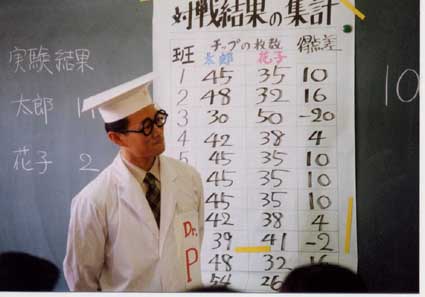 実験結果
太郎
花子 2
対戦結果の集計
班 チップの枚数 得点差
太郎 花子
1 45 35 10
2 48 32 16
3 30 50 -20
4 42 38 4
5 45 35 10
45 35 10
45 35 10
42 38 4
39 41 -2
48 32 16
54 26
10
Dr.
P